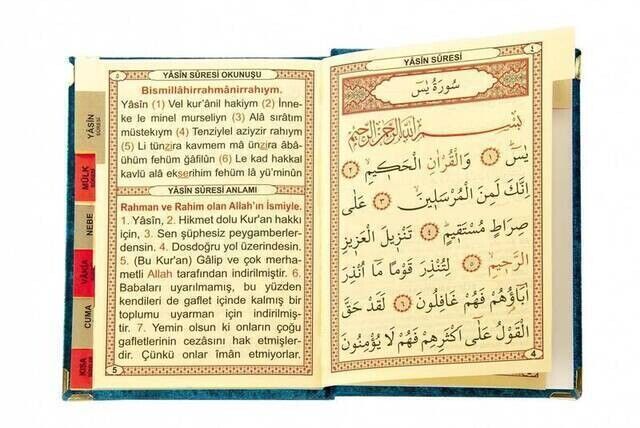 YÂSİN SÛRESİ OKUNUŞU
Bismillâhirrahmânirrahıym.
Yâsîn (1) Vel kur'ânil hakiym (2) İnne-
ke le minel murseliyn (3) Alâ sırâtım
müstekıym (4) Tenziylel aziyzir rahıym
(5) Li tünzira kavmem mâ ünzira âbâ-
ühüm fehüm ğâfilûn (6) Le kad hakkal
kavlü alâ ekserihim fehüm lâ yü'minûn
YÂSİN SÛRESİ ANLAMI
Rahman ve Rahim olan Allah'ın İsmiyle.
1. Yâsîn, 2. Hikmet dolu Kur'an hakkı
için, 3. Sen şüphesiz peygamberler-
densin. 4. Dosdoğru yol üzerindesin.
5. (Bu Kur'an) Gâlip ve çok merha-
metli Allah tarafından indirilmiştir. 6.
Babaları uyarılmamış, bu yüzden
kendileri de gaflet içinde kalmış bir
toplumu uyarman için indirilmiş-
tir. 7. Yemin olsun ki onların çoğu
gafletlerinin cezasını hak etmişler-
dir. Çünkü onlar îmân etmiyorlar.
5
YÂSİN
MÜLK
NEBE
VÂKIA
CUMA
KISA
YÂSİN SÛRESİ
٤
سُورَةُ يٰسٓ
بِسْمِ اللّٰهِ الرَّحْمٰنِ الرَّحِيمِ
يٰسٓ ﴿١﴾ وَالْقُرْاٰنِ الْحَكِيمِ ﴿٢﴾
اِنَّكَ لَمِنَ الْمُرْسَلِينَ ﴿٣﴾ عَلٰى
صِرَاطٍ مُسْتَقِيمٍ ﴿٤﴾ تَنْزِيلَ الْعَزِيزِ
الرَّحِيمِ ﴿٥﴾ لِتُنْذِرَ قَوْمًا مَٓا اُنْذِرَ
اٰبَٓاؤُهُمْ فَهُمْ غَافِلُونَ ﴿٦﴾ لَقَدْ حَقَّ
الْقَوْلُ عَلٰٓى اَكْثَرِهِمْ فَهُمْ لَا يُؤْمِنُونَ
4